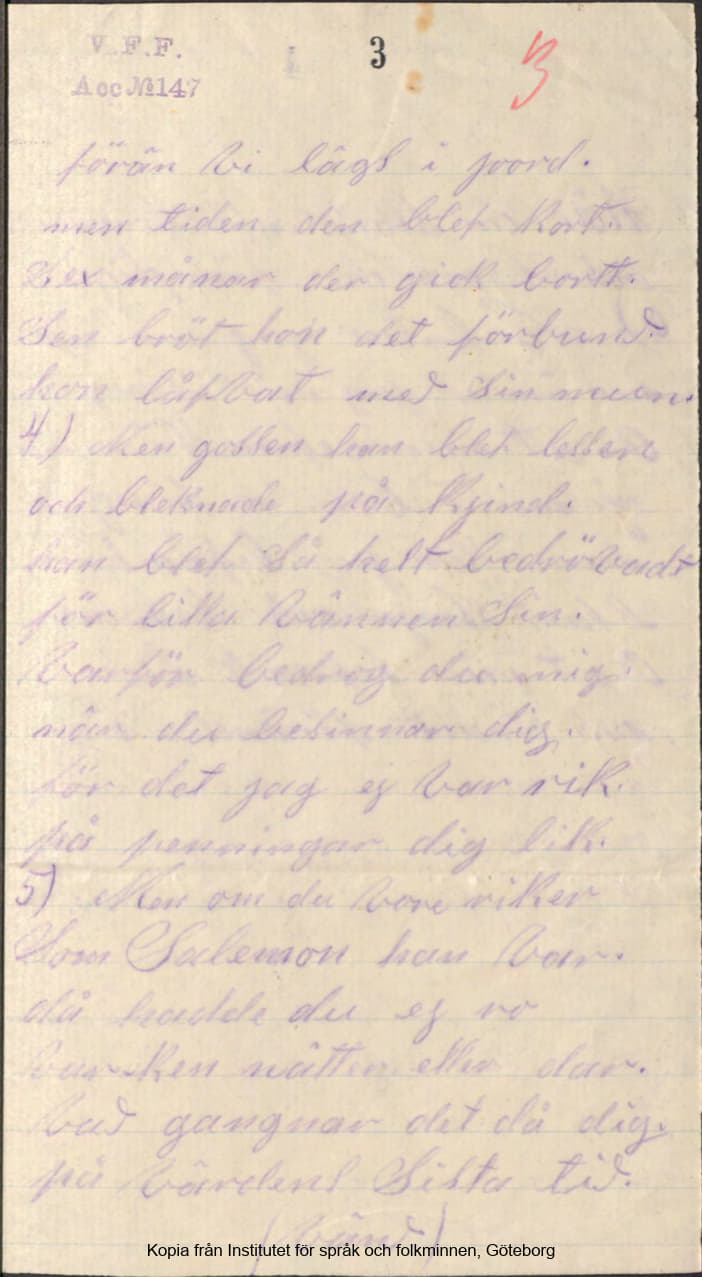 V.F.F.
3
3
Acc № 147
förän vi lägs i joord.
men tiden den blef kort.
Sex månar der gick bortt.
Sen bröt hon det förbund.
hon låfvat med Sin mun.
4) Men gossen han blef lessen
och bleknade på Kjind.
han blef så helt bedrövads
för lilla vännen Sin.
Varför bedrog du mig.
när du besinnar dig.
för det jag ej var rik.
på penningar dig lik.
5) Men om du vore riker
Som Salemon han var.
då hadde du ej ro
varken nätter eller dar.
Vad gangnar det då dig.
på värdens Sista tid.
(vänd)
Kopia från Institutet för språk och folkminnen, Göteborg